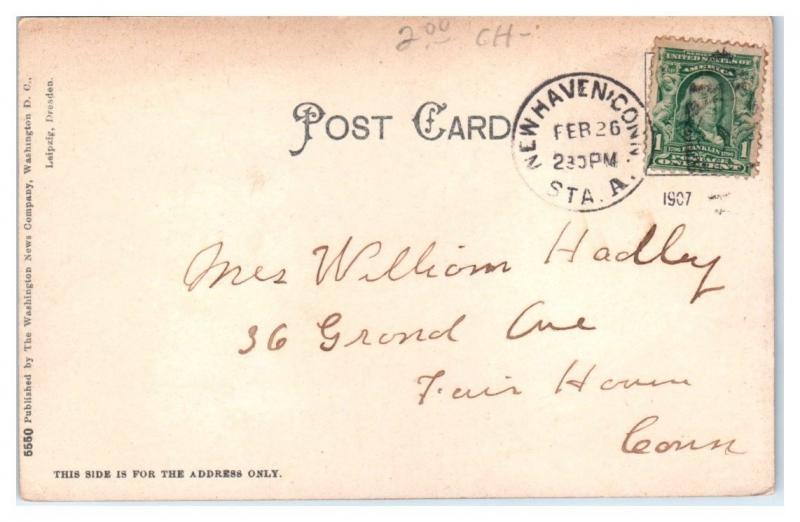 2.00 CH-
POST CARD
NEW HAVEN, CONN.
FEB 26
230PM
STA. A.
1907
UNITED STATES OF
AMERICA
FRANKLIN
1 1
POSTAGE
ONE CENT
Mrs William Hadley
36 Grand Ave
Fair Haven
Conn
THIS SIDE IS FOR THE ADDRESS ONLY.
5550 Published by The Washington News Company, Washington D. C.,
Leipzig, Dresden.